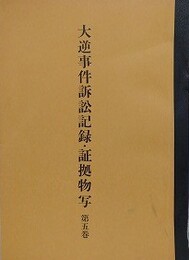 大逆事件訴訟記録・証拠物写 第五巻